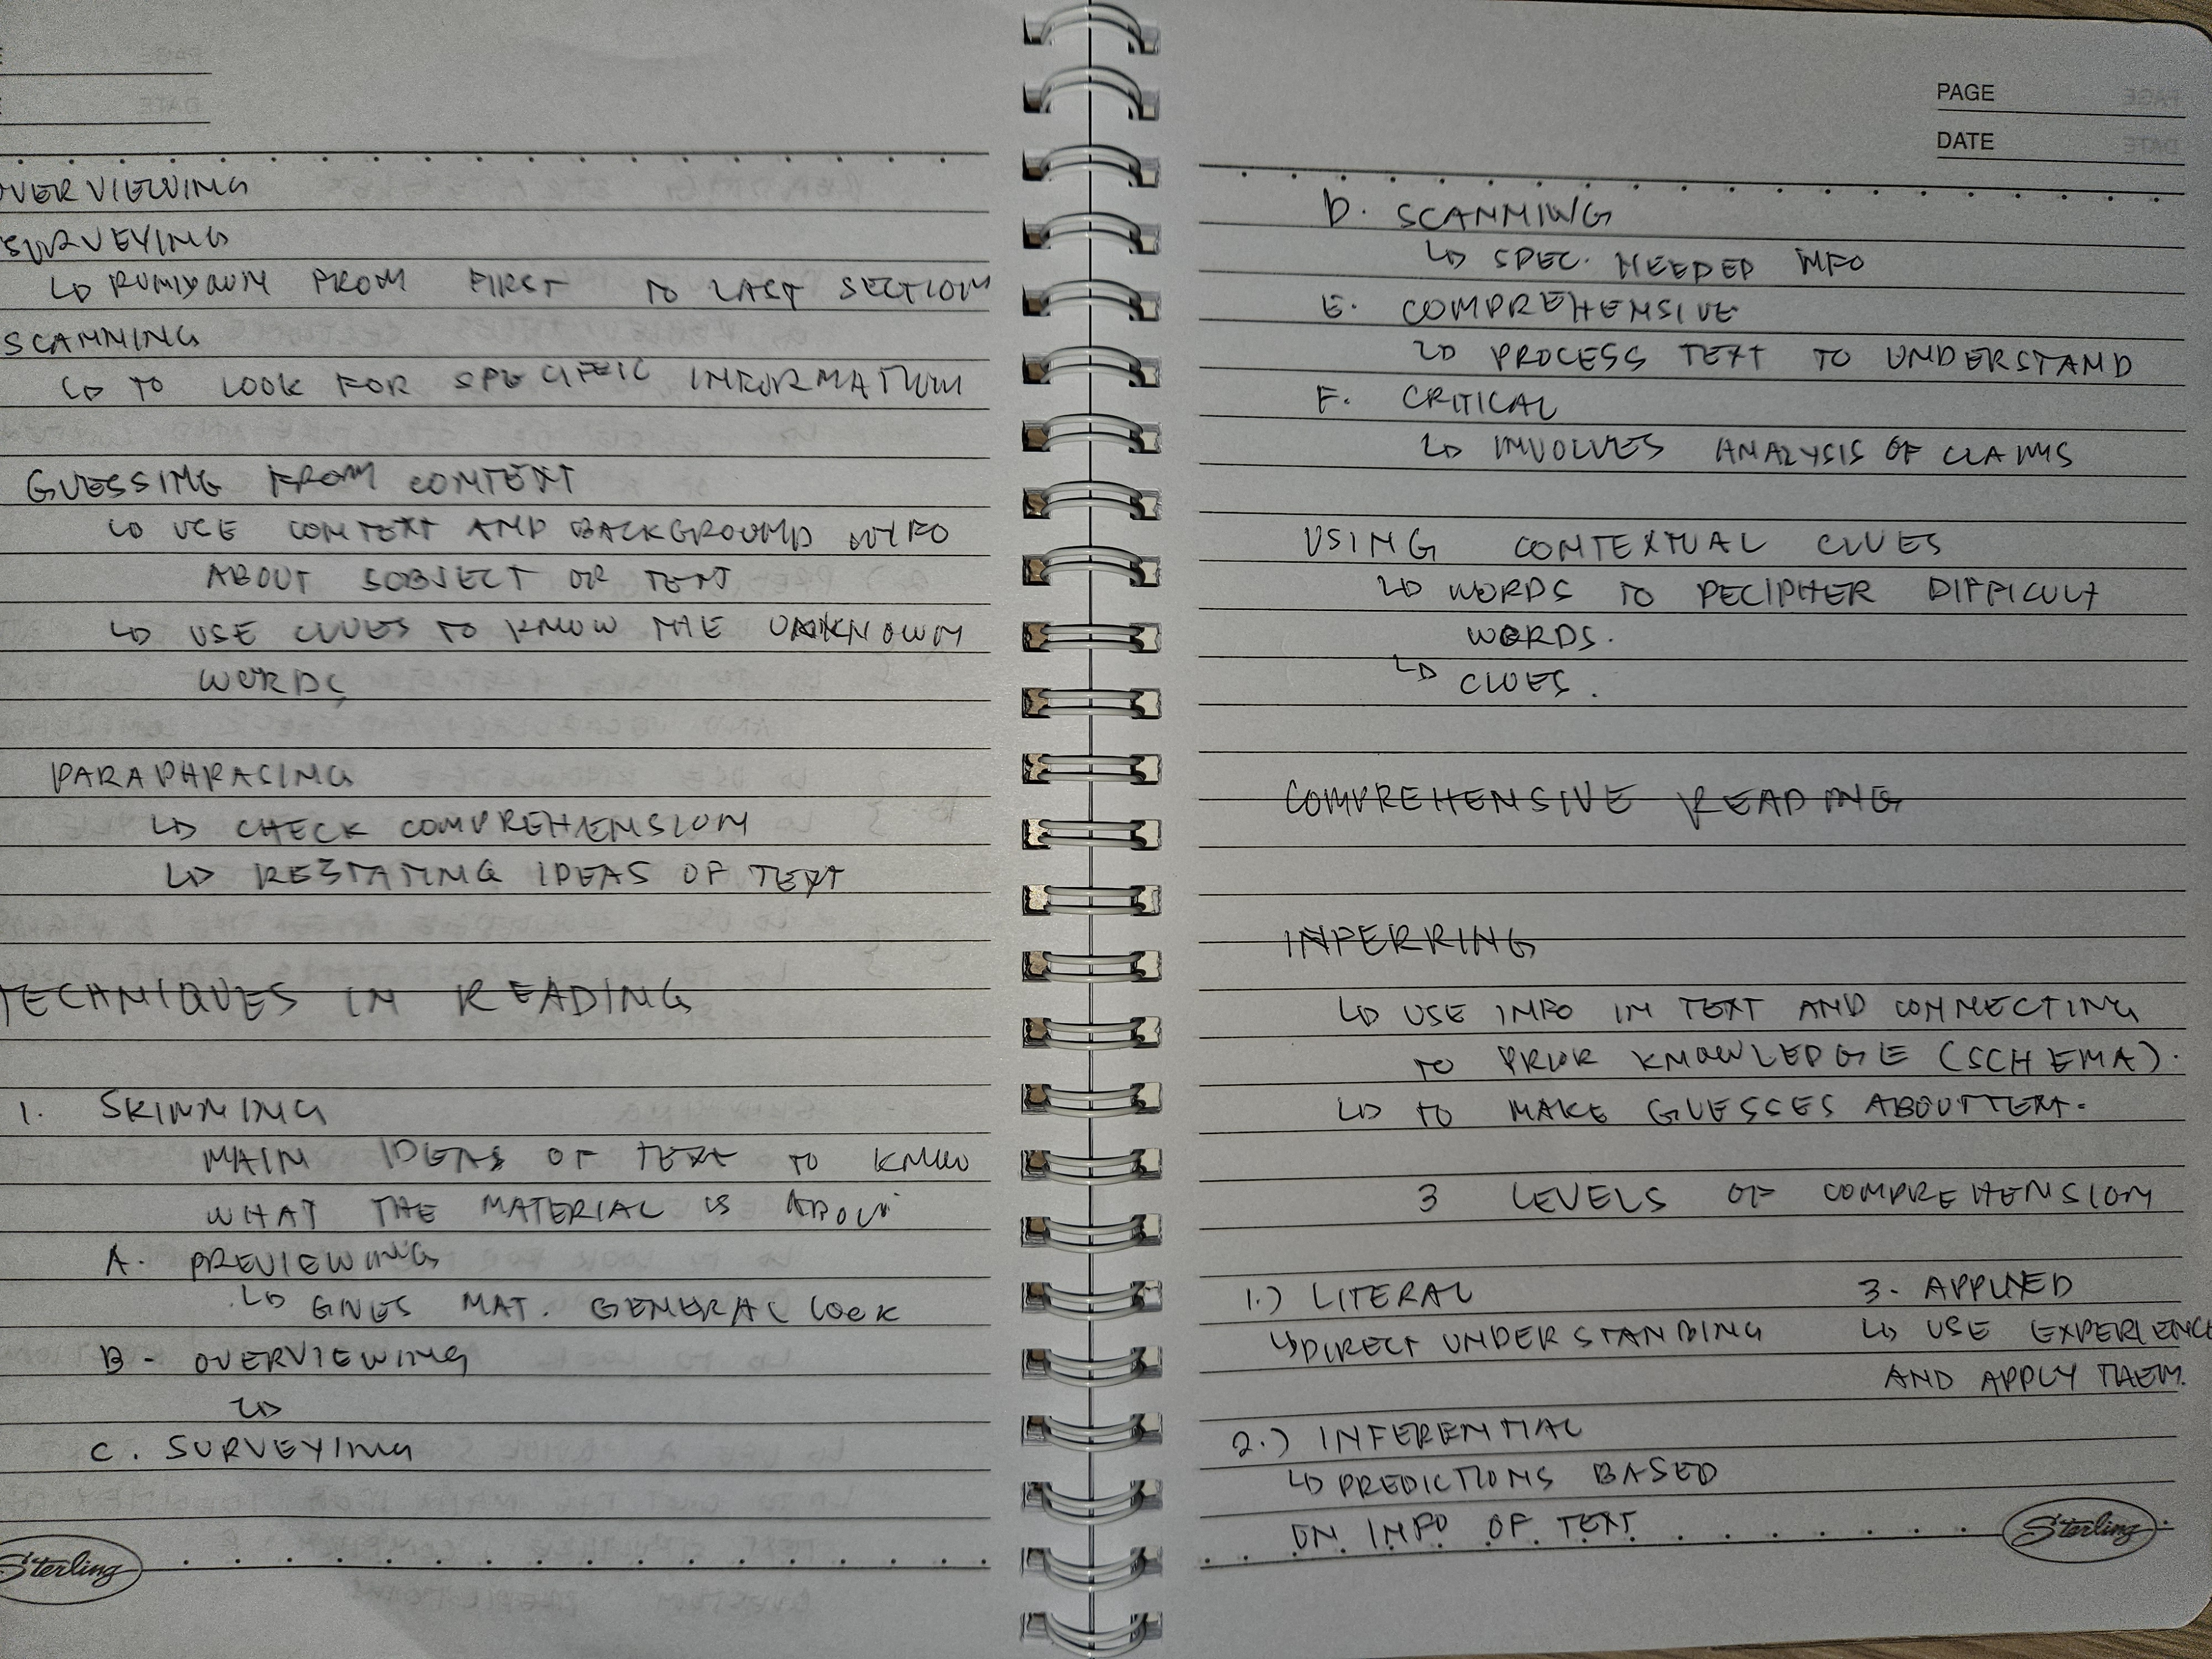 OVERVIEWING
SURVEYING
↳ PUNISYOMIN MORA FIRST TO LAST SECTION
SCANNING
↳ TO LOOK FOR SPECIFIC INFORMATION
GUESSING FROM CONTEXT
↳ USE CONTEXT AND BACKGROUND
ABOUT SUBJECT OR TEXT
↳ USE CLUES TO KNOW THE UNKNOWN
WORDS
PARAPHRASING
↳ CHECK COMPREHENSION
↳ RESTATING IDEAS OF TEXT
TECHNIQUES IN READING
1. SKIMMING
MAIN IDEAS OF TEXT TO KNOW
WHAT THE MATERIAL IS ABOUT.
A. PREVIEWING
↳ GIVES MAT. GENERAL LOOK
B. OVERVIEWING
C. SURVEYING
↳
Sterling
PAGE
DATE
D. SCANNING
↳ SPEC. NEEDED
E. COMPREHENSIVE
↳ PROCESS TEXT TO UNDERSTAND
F. CRITICAL
↳ INVOLVES ANALYSIS OF CLAIMS
USING CONTEXTUAL CLUES
↳ WORDS TO DECIPHER DIFFICULT
WORDS.
↳ CLUES.
INFERRING
↳ USE INFO IN TEXT AND CONNECTING
TO PRIOR KNOWLEDGE (SCHEMA).
↳ TO MAKE GUESSES ABOUT TEXT.
3 LEVELS OF COMPREHENSION
1.) LITERAL
↳ DIRECT UNDERSTANDING
2.) INFERENTIAL
↳ PREDICTIONS BASED
ON INFO OF TEXT
3. APPLIED
↳ USE EXPERIENCE
AND APPLY THEM.
Sterling